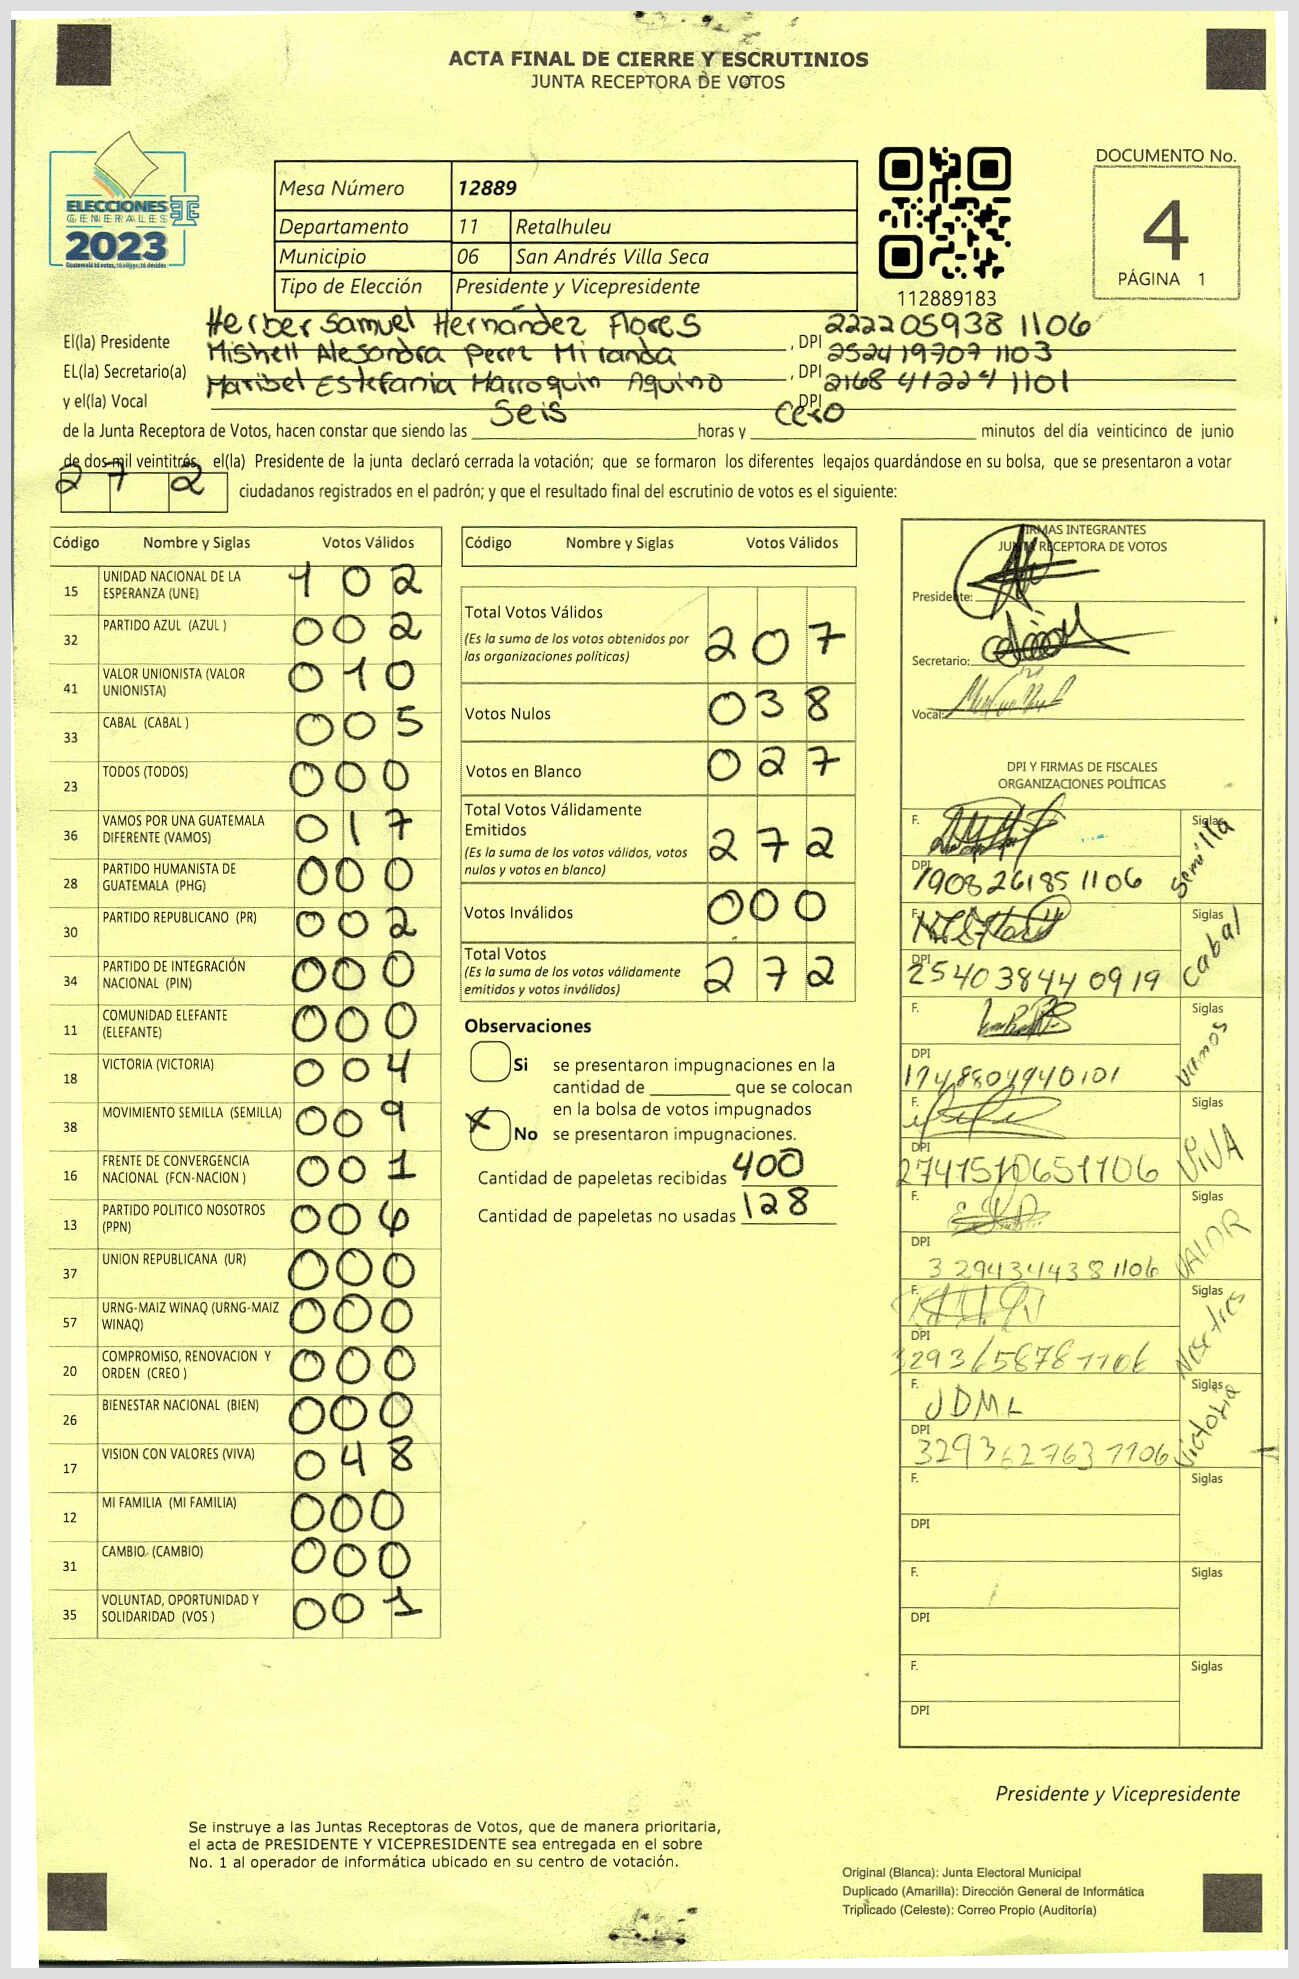 ACTA FINAL DE CIERRE Y ESCRUTINIOS
JUNTA RECEPTORA DE VOTOS
ELECCIONES
GENERALES
2023
Mesa Número 12889
Departamento 11 Retalhuleu
Municipio 06 San Andrés Villa Seca
Tipo de Elección Presidente y Vicepresidente
112889183
DOCUMENTO No.
4
PÁGINA 1
El(la) Presidente Herber Samuel Hernández Flores, DPI 222205938 1106
EL(la) Secretario(a) Mishell Alejandra Perez Miranda, DPI 252419707 1103
y el(la) Vocal Maribel Estefania Marroquin Aquino DPI 2168 41224 1101
de la Junta Receptora de Votos, hacen constar que siendo las Seis horas y Cero minutos del día veinticinco de junio
de dos mil veintitrés, el(la) Presidente de la junta declaró cerrada la votación; que se formaron los diferentes legajos guardándose en su bolsa, que se presentaron a votar
272 ciudadanos registrados en el padrón; y que el resultado final del escrutinio de votos es el siguiente:
Código Nombre y Siglas Votos Válidos
15 UNIDAD NACIONAL DE LA ESPERANZA (UNE) 102
32 PARTIDO AZUL (AZUL ) 002
41 VALOR UNIONISTA (VALOR UNIONISTA) 010
33 CABAL (CABAL ) 005
23 TODOS (TODOS) 000
36 VAMOS POR UNA GUATEMALA DIFERENTE (VAMOS) 017
28 PARTIDO HUMANISTA DE GUATEMALA (PHG) 000
30 PARTIDO REPUBLICANO (PR) 002
34 PARTIDO DE INTEGRACIÓN NACIONAL (PIN) 000
11 COMUNIDAD ELEFANTE (ELEFANTE) 000
18 VICTORIA (VICTORIA) 004
38 MOVIMIENTO SEMILLA (SEMILLA) 009
16 FRENTE DE CONVERGENCIA NACIONAL (FCN-NACION ) 001
13 PARTIDO POLITICO NOSOTROS (PPN) 006
37 UNION REPUBLICANA (UR) 000
57 URNG-MAIZ WINAQ (URNG-MAIZ WINAQ) 000
20 COMPROMISO, RENOVACION Y ORDEN (CREO ) 000
26 BIENESTAR NACIONAL (BIEN) 000
17 VISION CON VALORES (VIVA) 048
12 MI FAMILIA (MI FAMILIA) 000
31 CAMBIO (CAMBIO) 000
35 VOLUNTAD, OPORTUNIDAD Y SOLIDARIDAD (VOS ) 001
Código Nombre y Siglas Votos Válidos
Total Votos Válidos 207
(Es la suma de los votos obtenidos por
las organizaciones políticas)
Votos Nulos 038
Votos en Blanco 027
Total Votos Válidamente
Emitidos 272
(Es la suma de los votos válidos, votos
nulos y votos en blanco)
Votos Inválidos 000
Total Votos 272
(Es la suma de los votos válidamente
emitidos y votos inválidos)
Observaciones
Si se presentaron impugnaciones en la
cantidad de ________ que se colocan
en la bolsa de votos impugnados
X No se presentaron impugnaciones.
Cantidad de papeletas recibidas 400
Cantidad de papeletas no usadas 128
FIRMAS INTEGRANTES
JUNTA RECEPTORA DE VOTOS
Presidente:
Secretario:
Vocal:
DPI Y FIRMAS DE FISCALES
ORGANIZACIONES POLÍTICAS
F. Siglas Semilla
DPI 190826185 1106
F. Siglas Cabal
DPI 254038440919
F. Siglas Vamos
DPI 1748804940101
F. Siglas VIVA
DPI 2741510651106
F. Siglas VALOR
DPI 329434438 1106
F. Siglas Nosotros
DPI 3293658781106
F. JDML Siglas Victoria
DPI 3293627637106
F. Siglas
DPI
F. Siglas
DPI
F. Siglas
DPI
Presidente y Vicepresidente
Se instruye a las Juntas Receptoras de Votos, que de manera prioritaria,
el acta de PRESIDENTE Y VICEPRESIDENTE sea entregada en el sobre
No. 1 al operador de informática ubicado en su centro de votación.
Original (Blanca): Junta Electoral Municipal
Duplicado (Amarilla): Dirección General de Informática
Triplicado (Celeste): Correo Propio (Auditoría)